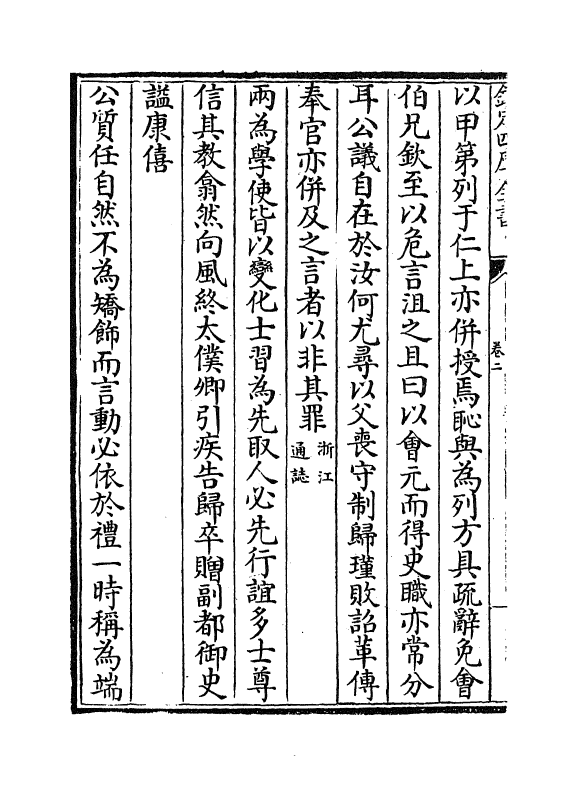 欽定四庫全書
卷二
以甲第列于仁上亦併授焉恥與為列方具疏辭免會
伯兄欽至以危言沮之且曰以會元而得史職亦常分
耳公議自在於汝何尤尋以父喪守制歸瑾敗詔革傳
奉官亦併及之言者以非其罪浙江通誌
兩為學使皆以變化士習為先取人必先行誼多士尊
信其教翕然向風終太僕卿引疾告歸卒贈副都御史
謚康僖
公質任自然不為矯飾而言動必依於禮一時稱為端